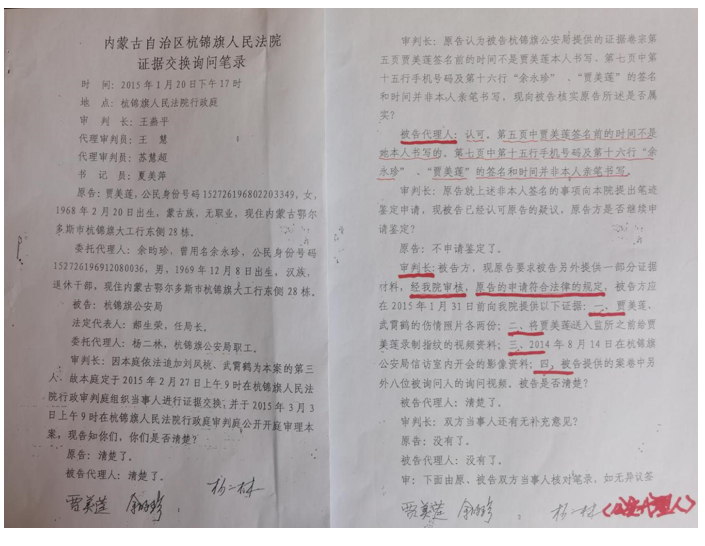 内蒙古自治区杭锦旗人民法院
证据交换询问笔录
时　间：2015年1月20日下午17时
地　点：杭锦旗人民法院行政庭
审　判　长：王燕平
代理审判员：王　慧
代理审判员：苏慧超
书　记　员：夏美萍
原告：贾美莲，公民身份号码152726196802203349，女，
1968年2月20日出生，蒙古族，无职业，现住内蒙古鄂尔
多斯市杭锦旗大工行东侧28栋。
委托代理人：余昀珍，曾用名余永珍，公民身份号码
152726196912080036，男，1969年12月8日出生，汉族，
退休干部，现住内蒙古鄂尔多斯市杭锦旗大工行东侧28栋。
被告：杭锦旗公安局
法定代表人：郝生荣，任局长。
委托代理人：杨二林，杭锦旗公安局职工。
审判长：因本庭依法追加刘凤梳、武霄鹤为本案的第三
人，故本庭定于2015年2月27日上午9时在杭锦旗人民法
院行政审判庭组织当事人进行证据交换；并于2015年3月3
日上午9时在杭锦旗人民法院行政庭审判庭公开开庭审理本
案。现告知你们，你们是否清楚？
原告：清楚了。
被告代理人：清楚了。
贾美莲　余昀珍　杨二林
审判长：原告认为被告杭锦旗公安局提供的证据卷宗第
五页贾美莲签名前的时间不是贾美莲本人书写、第七页中第
十五行手机号码及第十六行“余永珍”、“贾美莲”的签名
和时间并非本人亲笔书写，现向被告核实原告所述是否属
实？
被告代理人：认可。第五页中贾美莲签名前的时间不是
她本人书写的、第七页中第十五行手机号码及第十六行“余
永珍”、“贾美莲”的签名和时间并非本人亲笔书写。
审判长：原告就上述非本人签名的事项向本院提出笔迹
鉴定申请，现被告已经认可原告的疑议，原告方是否继续申
请鉴定？
原告：不申请鉴定了。
审判长：被告方，现原告要求被告另外提供一部分证据
材料，经我院审核，原告的申请符合法律的规定，被告方应
在2015年1月31日前向我院提供以下证据：一、贾美莲、
武霄鹤的伤情照片各两份；二、将贾美莲送入监所之前给贾
美莲录制指纹的视频资料；三、2014年8月14日在杭锦旗
公安局信访室内开会的影像资料；四、被告提供的案卷中另
外八位被询问人的询问视频。被告是否清楚？
被告代理人：清楚了。
审判长：双方当事人还有无补充意见？
原告：没有了。
被告代理人：没有了。
审：下面由原、被告双方当事人核对笔录，如无异议签
贾美莲　余昀珍　杨二林